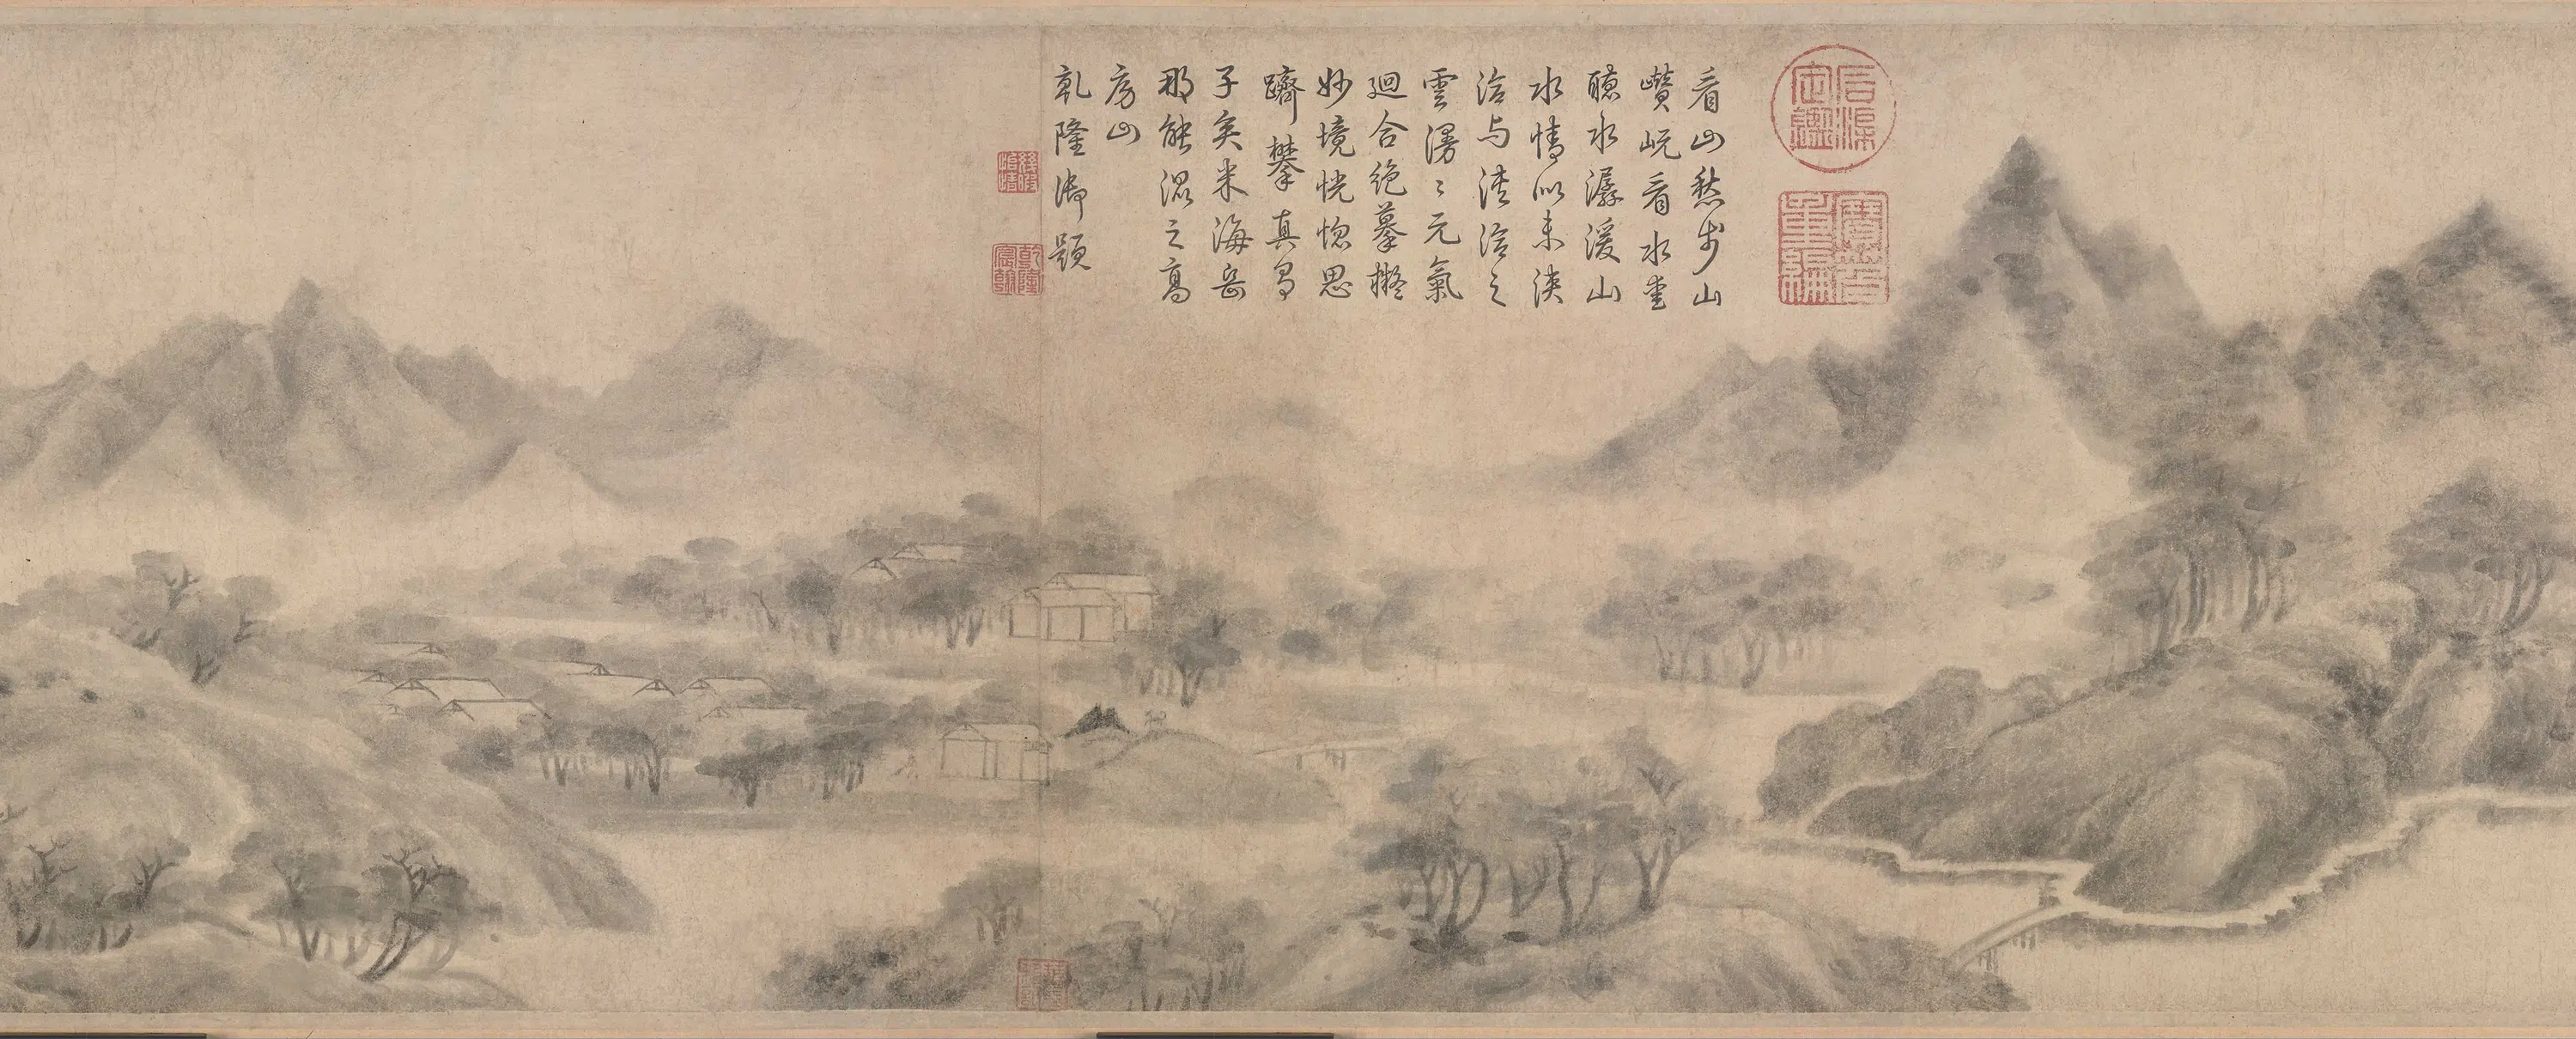 石渠定鑑
寶笈重編
看山愁步山
巑岏看水喜
聽水潺湲山
水情似未浹
洽与浹洽之
雲漫〻元氣
迴合絶摹擬
妙境恍惚思
躋攀真
子矣米海岳
那能混之高
房山
乾隆御題
幾暇怡情
乾隆宸翰